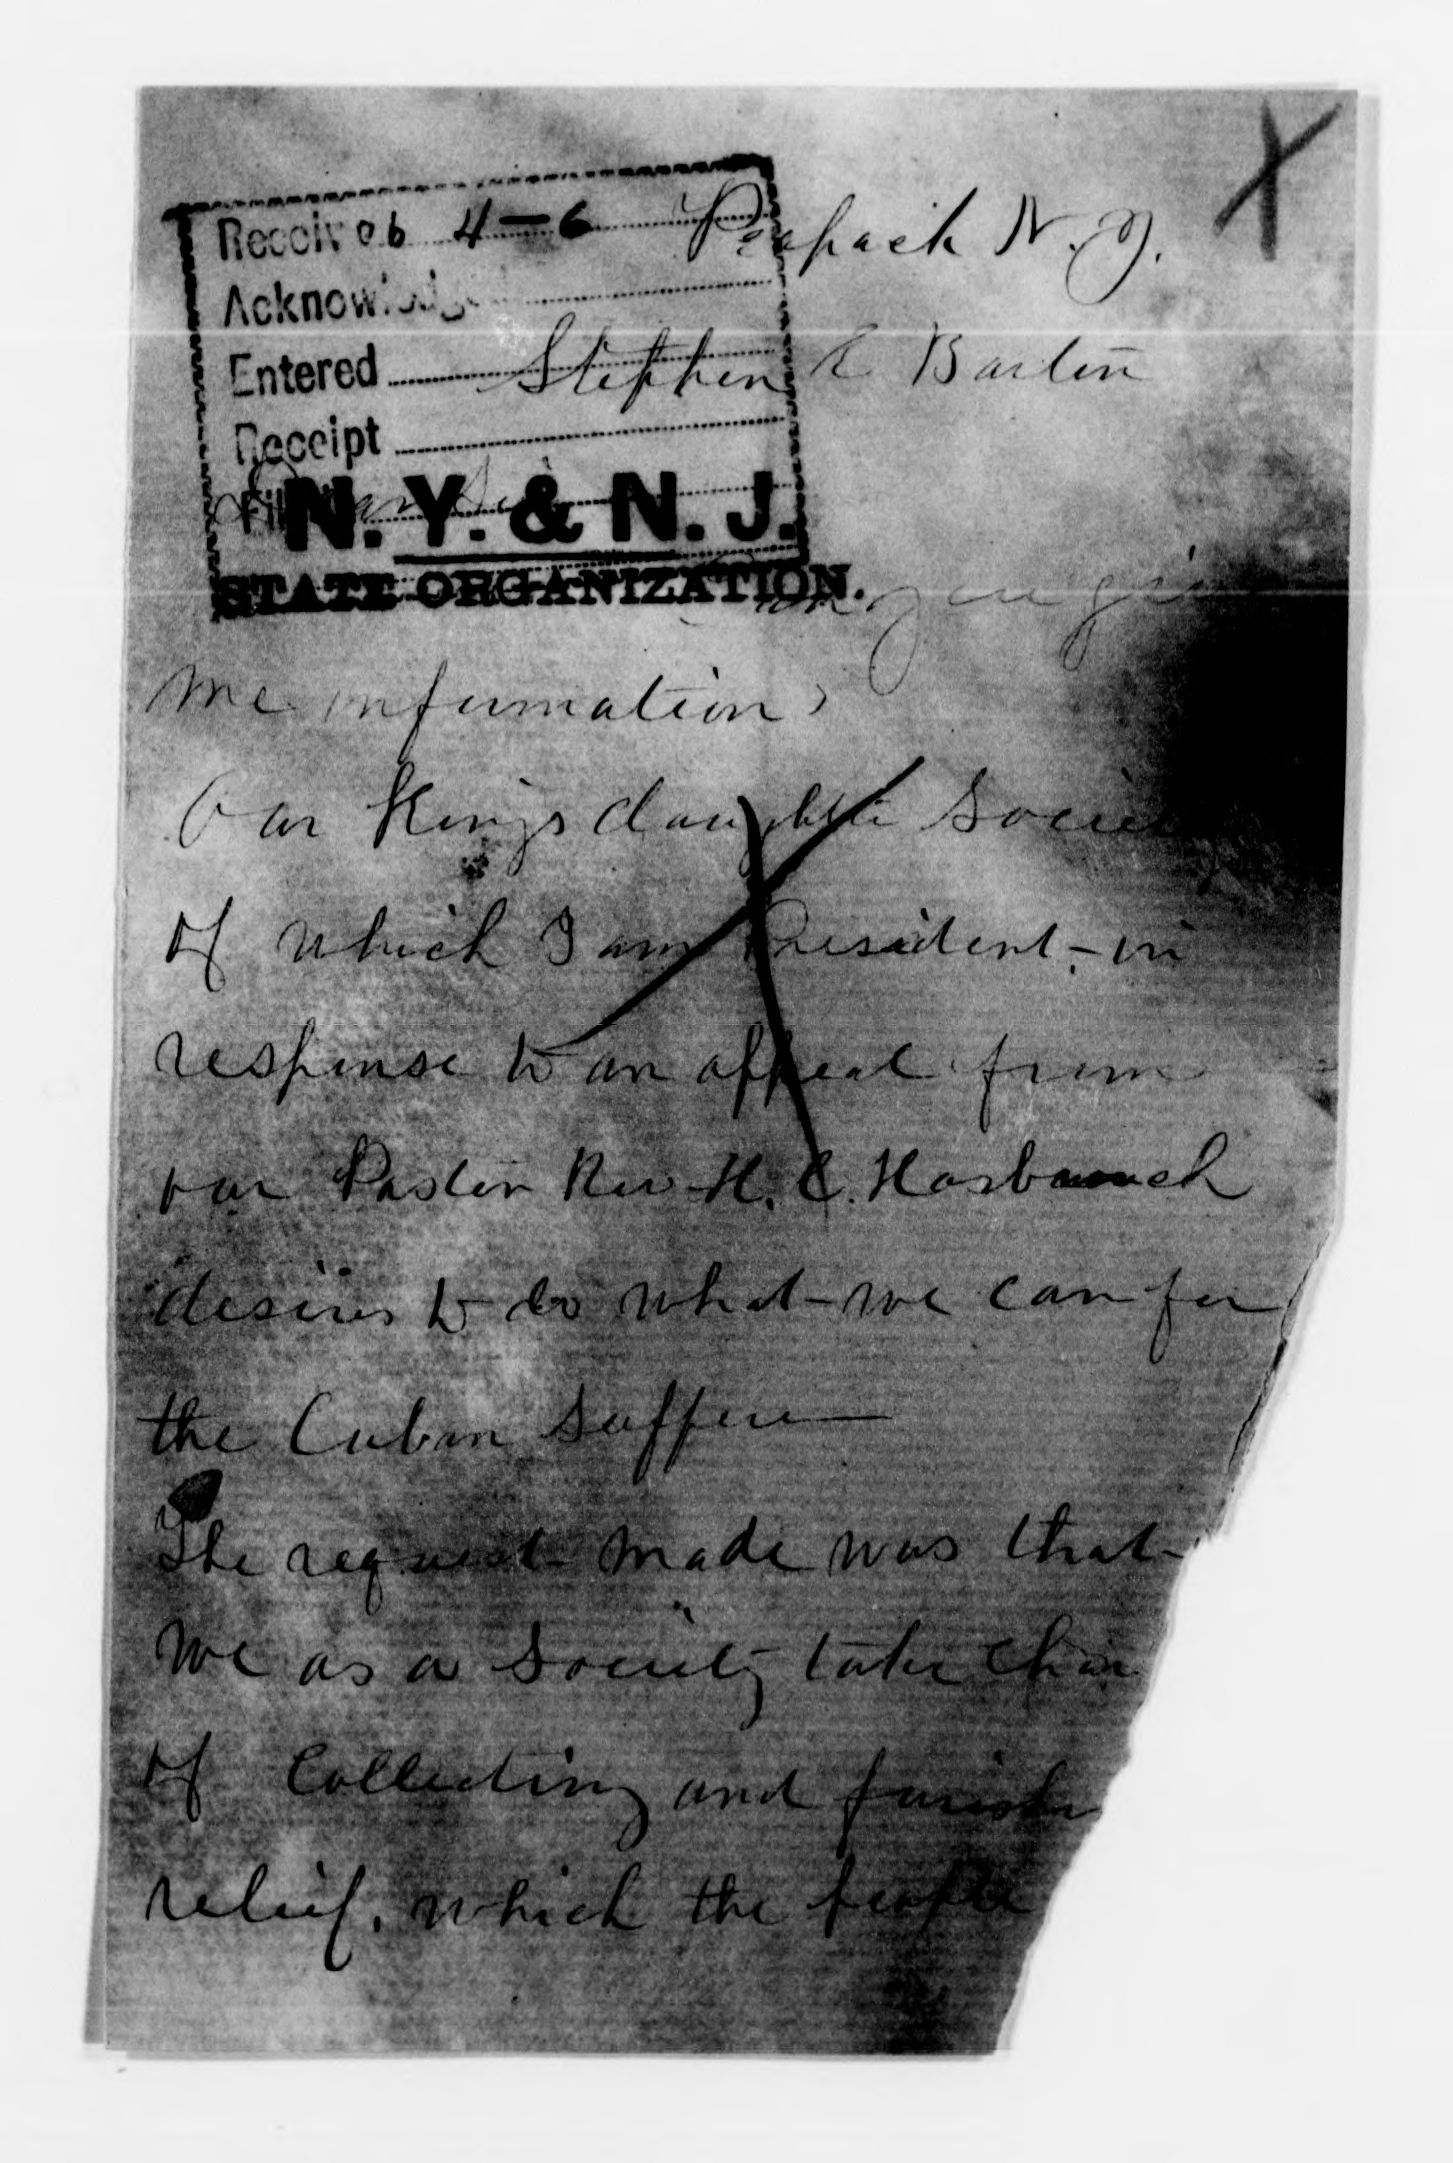 X
Received 4-6
Peapack N. J.
Acknowledged
Entered
Stephen E Barton
Receipt
Dear Sir
N. Y. & N. J.
STATE ORGANIZATION.
Can you give
me information,
Our Kings daughter Society
of which I am President, - in
response to an appeal from
our Pastor Rev H. C. Hasbrouck
desires to do what we can for
the Cuban Suffere
The request made was that
we as a Society take char
of Collecting and furish
relief, which the people